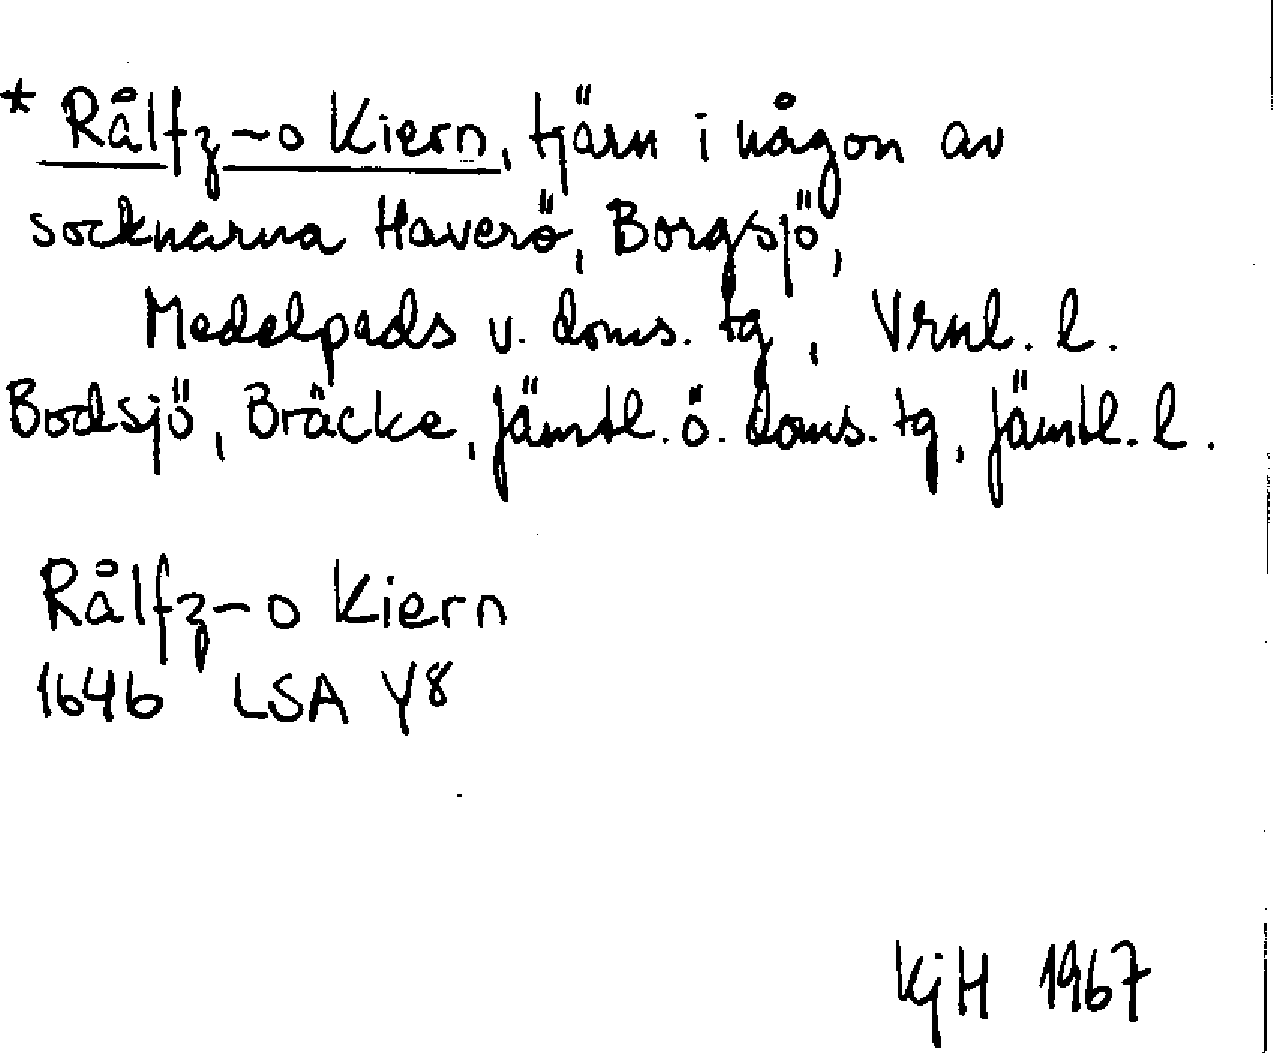 * Rålfz-o Kiern, tjärn i någon av
socknarna Haverö, Borgsjö,
Medelpads v. doms. tg, Vrnl. l.
Bodsjö, Bräcke, Jämtl. ö. doms. tg, Jämtl. l.
Rålfz-o Kiern
1646 LSA Y8
KjH 1967